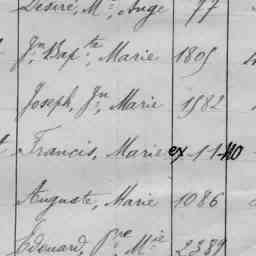 Désiré, Mie, Ange 77
Jn, Bapte, Marie 1805
Joseph, Jn, Marie 1582
Francis, Marie ex-11-110
Auguste, Marie 1086
Edouard, Pre, Mie 2389